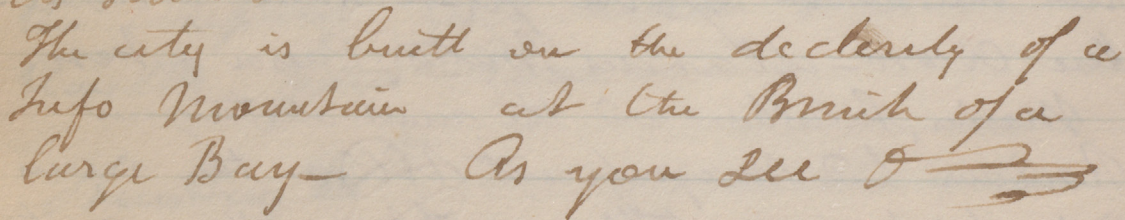 The city is built on the declevity of a
Tufo Mountain at the Brink of a
large Bay— As you see